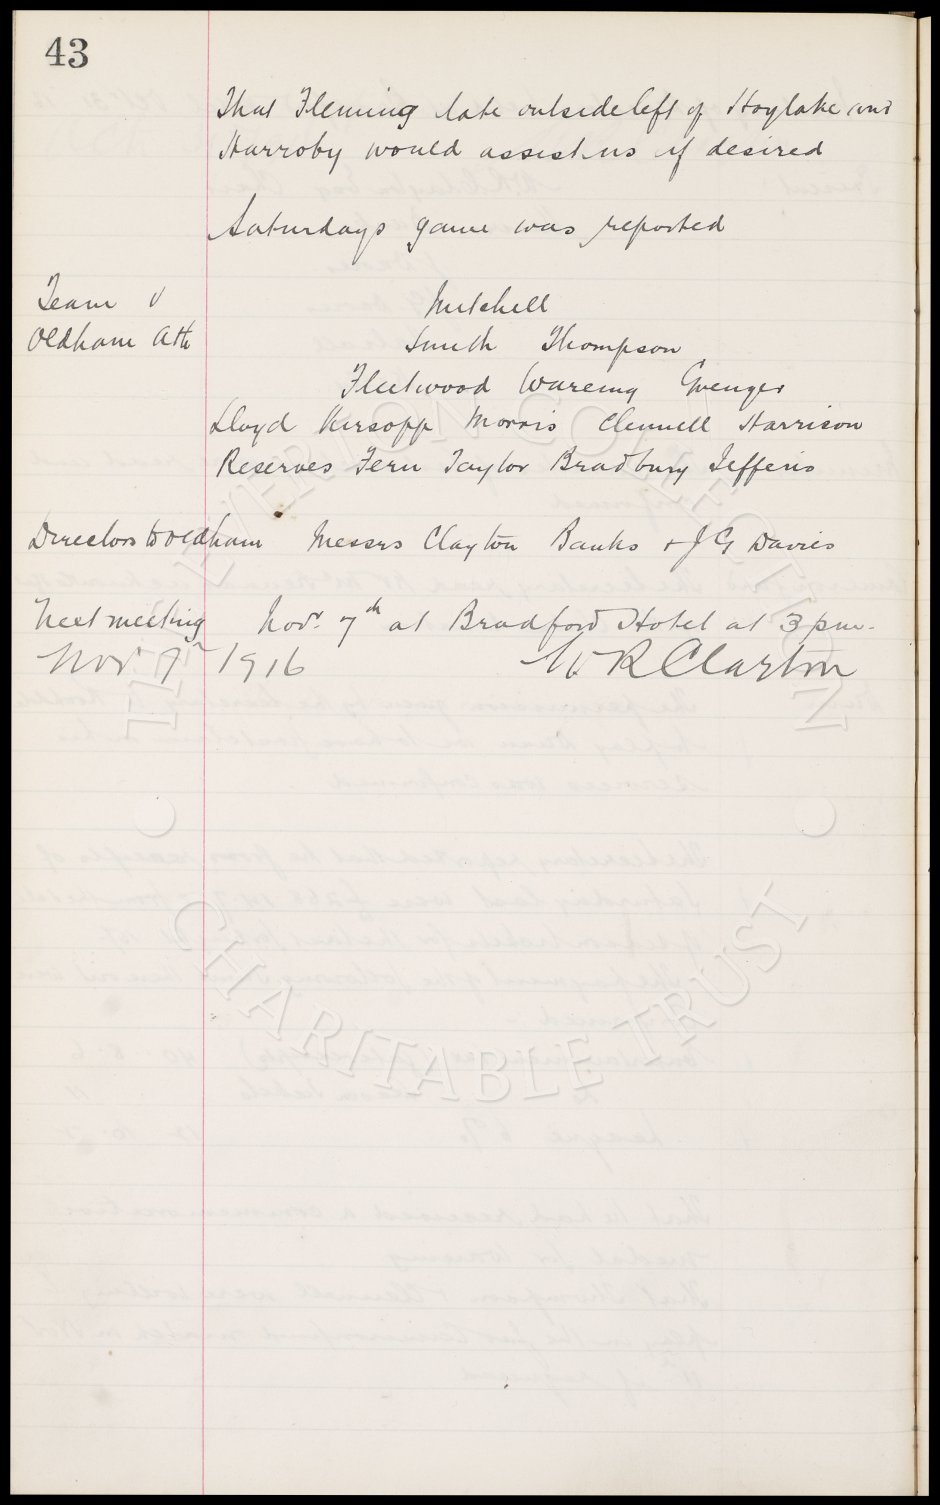 43
That Fleming late outside left of Hoylake and
Harroby would assist us if desired
Saturdays game was reported
Team v Mitchell
Oldham Ath Smith Thompson
Fleetwood Wareing Grenyer
Lloyd Kirsopp Morris Clennell Harrison
Reserves Fern Taylor Bradbury Jefferis
Directors to Oldham Messrs Clayton Banks & J G Davies
Next meeting Novr. 7th at Bradford Hotel at 3 pm.
Novr 7th 1916 W R Clayton
THE EVERTON COLLECTION
CHARITABLE TRUST